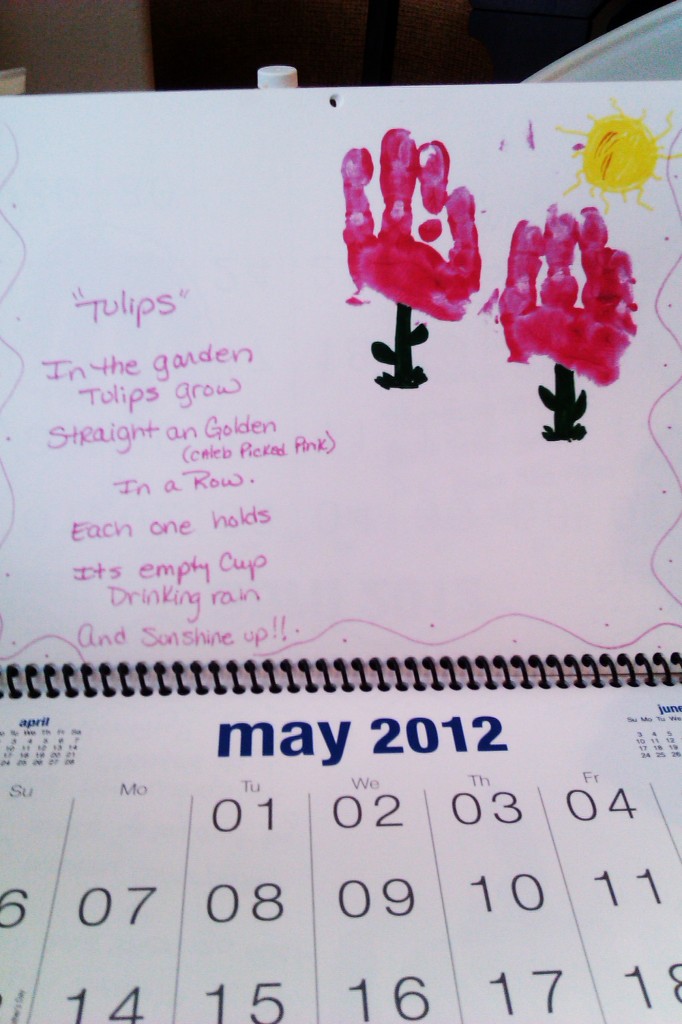 "Tulips"
In the garden
Tulips grow
Straight an Golden
(Caleb Picked Pink)
In a Row.
Each one holds
Its empty Cup
Drinking rain
And Sonshine up!!
april
may 2012
june
Su Mo Tu We Th Fr
01 02 03 04
07 08 09 10 11
14 15 16 17 18